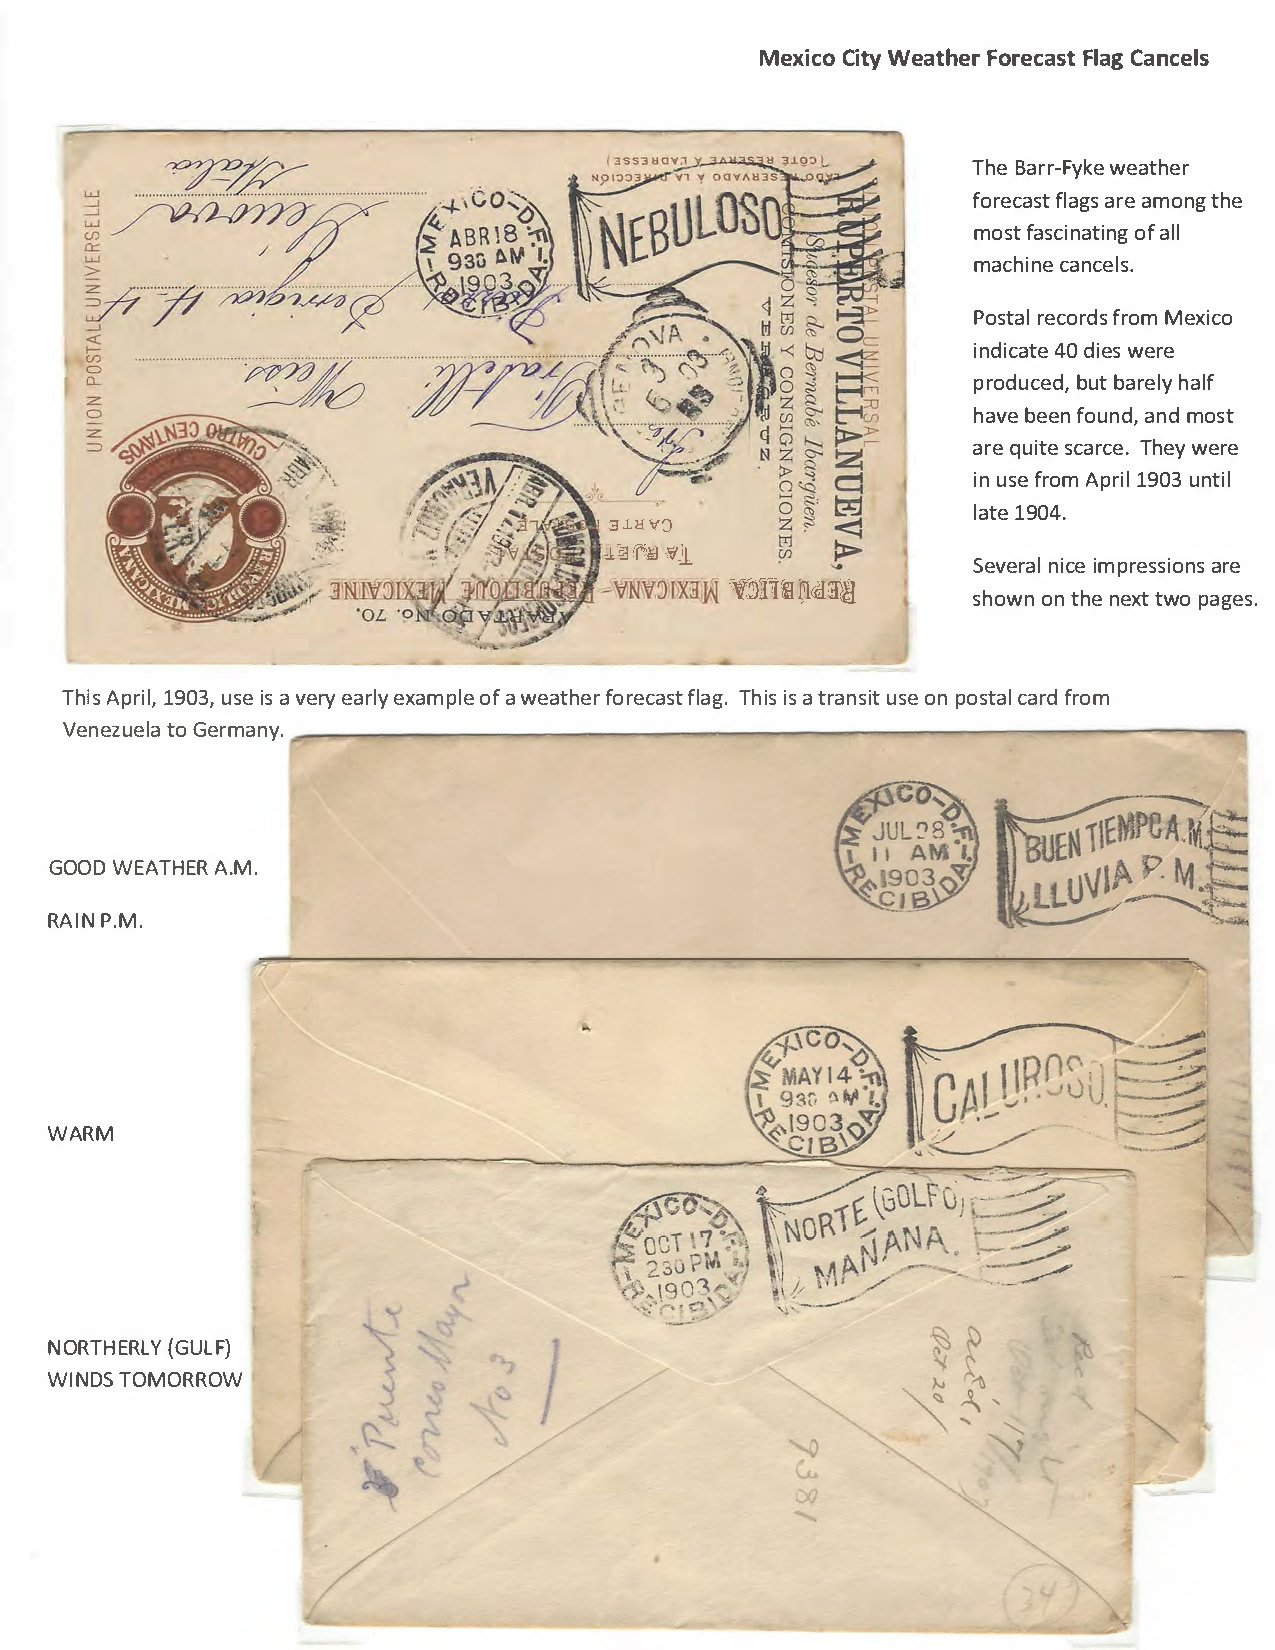 Mexico City Weather Forecast Flag Cancels
The Barr-Fyke weather
forecast flags are among the
most fascinating of all
machine cancels.
Postal records from Mexico
indicate 40 dies were
produced, but barely half
have been found, and most
are quite scarce. They were
in use from April 1903 until
late 1904.
Several nice impressions are
shown on the next two pages.
REPÚBLICA MEXICANA-RÉPUBLIQUE MEXICAINE
TARJETA POSTAL
CARTE POSTALE
LADO RESERVADO A LA DIRECCIÓN
(COTÉ RESERVÉ À L'ADRESSE)
UNION POSTALE UNIVERSELLE
CUATRO CENTAVOS
RUPERTO VILLANUEVA,
Sucesor de Bernabé Ibargüen.
COMISIONES Y CONSIGNACIONES.
APARTADO No. 70.
Fratelli Weiss
Genova
Italia
MEXICO-D.F.
ABR 18
930 AM
1903
RECIBIDA
NEBULOSO
GENOVA
VERACRUZ
This April, 1903, use is a very early example of a weather forecast flag. This is a transit use on postal card from
Venezuela to Germany.
GOOD WEATHER A.M.
RAIN P.M.
MEXICO-D.F.
JUL 28
11 AM
1903
RECIBIDA
BUEN TIEMPO A.M.
LLUVIA P.M.
WARM
MEXICO-D.F.
MAY 14
930 AM
1903
RECIBIDA
CALUROSO.
NORTHERLY (GULF)
WINDS TOMORROW
MEXICO-D.F.
OCT 17
230 PM
1903
RECIBIDA
NORTE (GOLFO)
MAÑANA.
Puente
Correo Mayor
No 3
9381
Oct 20/
34